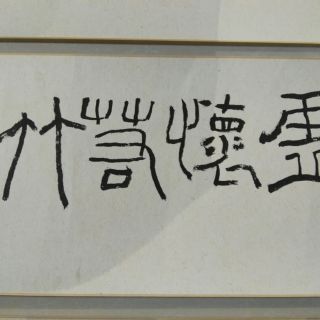 虛懷若竹